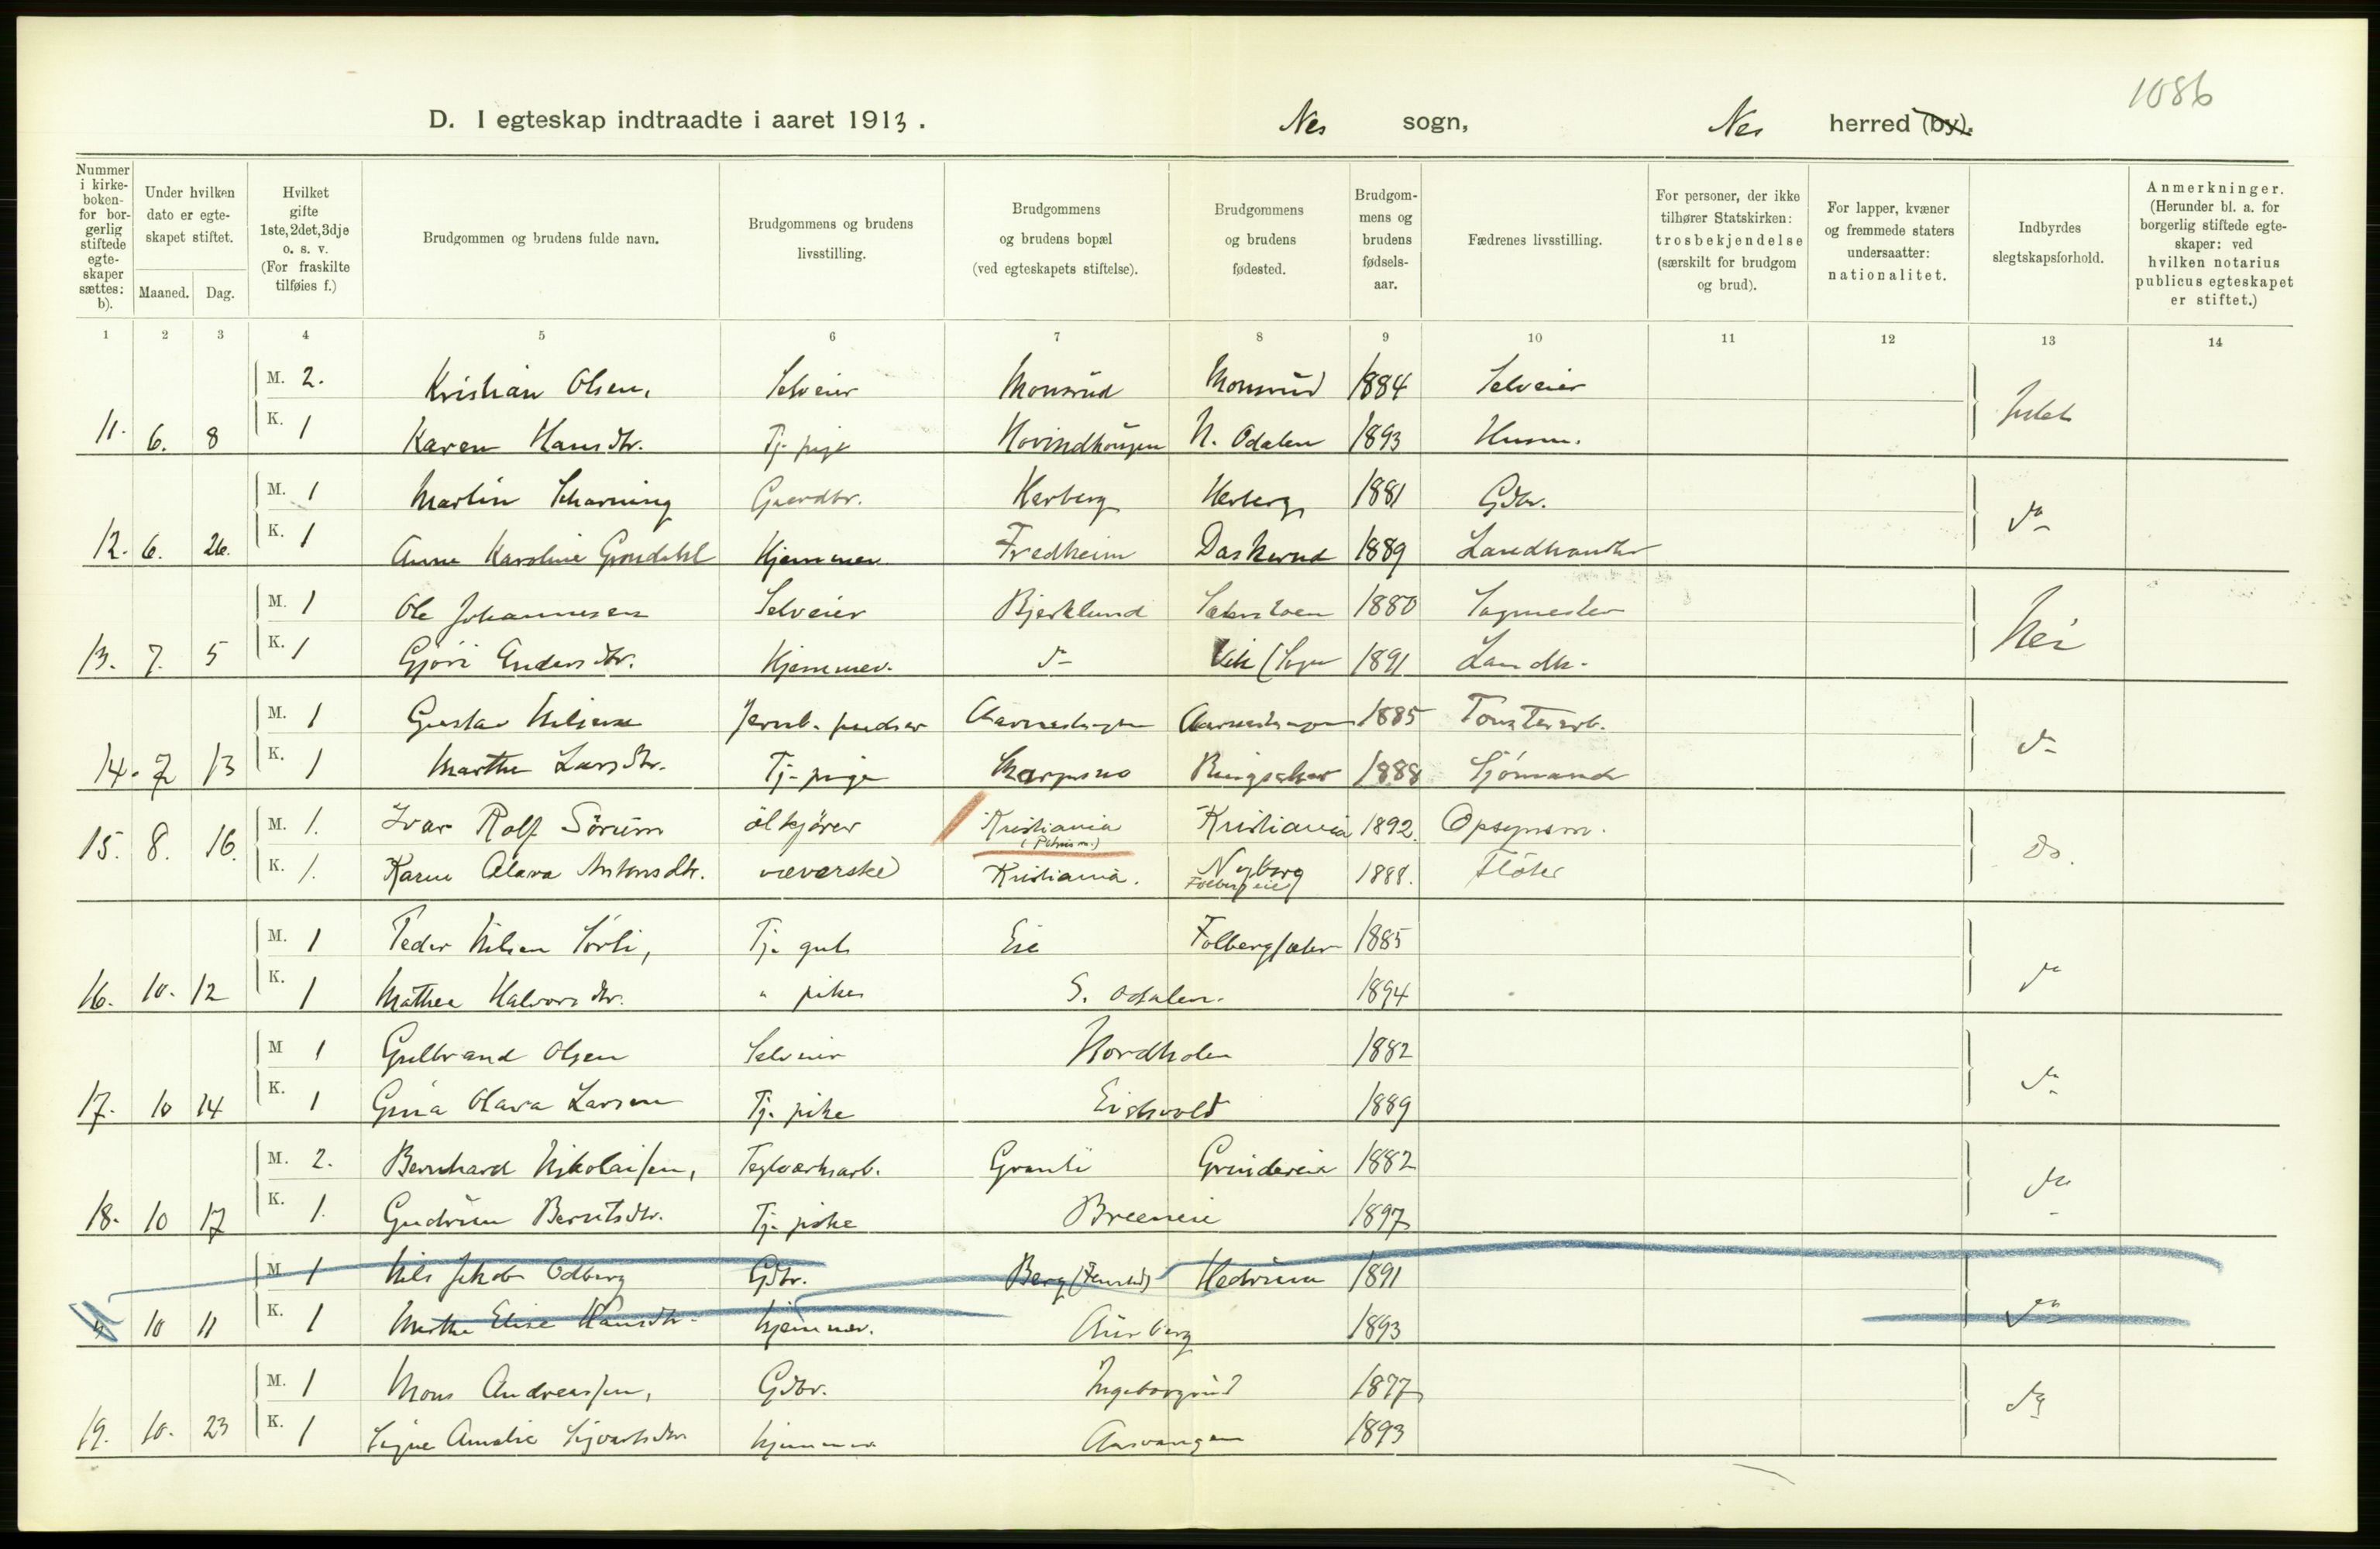 1086
D. I egteskap indtraadte i aaret 1913. Nes sogn, Nes herred (by).
Nummer i kirke-boken- for bor-gerlig stiftede egte-skaper sættes: b).
Under hvilken dato er egte-skapet stiftet.
Maaned. Dag.
Hvilket gifte 1ste, 2det, 3dje o. s. v. (For fraskilte tilføies f.)
Brudgommen og brudens fulde navn.
Brudgommens og brudens livsstilling.
Brudgommens og brudens bopæl (ved egteskapets stiftelse).
Brudgommens og brudens fødested.
Brudgom-mens og brudens fødsels-aar.
Fædrenes livsstilling.
For personer, der ikke tilhører Statskirken: trosbekjendelse (særskilt for brudgom og brud).
For lapper, kvæner og fremmede staters undersaatter: nationalitet.
Indbyrdes slegtskapsforhold.
Anmerkninger. (Herunder bl. a. for borgerlig stiftede egte-skaper: ved hvilken notarius publicus egteskapet er stiftet.)
1 2 3 4 5 6 7 8 9 10 11 12 13 14
M. 2. Kristian Olsen, Selveier Monsrud Monsrud 1884 Selveier
11. 6. 8 K. 1 Karen Hansdtr. Tj. pige N. Odalen 1893 Husm.
M. 1 Martin Scharning Gaardbr. Herberg Herberg 1881 Gdbr.
12. 6. 26. K. 1 Anna Karoline Grøndahl Hjemmev. Fredheim Daskerud 1889 Landhandler
M. 1 Ole Johannesen Selveier Bjerklund 1880 Sagmester
13. 7. 5 K. 1 Gjøri Andersdtr. Hjemmev. d- Vik (Sogn 1891 Landh.
M. 1 Gustav Nilsen Jernb. pudser 1885 Tomtearb.
14. 7 13 K. 1 Marthe Larsdtr. Tj. pige Ringsaker 1888 Sjömand
15. 8. 16. M. 1. Ivar Rolf Sörum ölkjörer Kristiania 1892. Opsynsm.
K. 1. Karen Olava Antonsdtr. væverske Kristiania. Nyberg Folbergeie 1888. Fløter
Kristiania do.
M. 1 Peder Nilsen Sørli, Tj. gut Eie Folbergsæter 1885
16. 10. 12 K. 1 Mathea Halvorsdtr. " pike S. Odalen. 1894
M 1 Gulbrand Olsen Selveier Nordholen 1882
17. 10 14 K. 1 Gina Olava Larsen Tj. pike Eidsvold 1889
M. 2. Bernhard Nikolaisen, Teglværksarb. Granli Grindereie 1882
18. 10 17 K. 1. Gudrun Berntsdtr. Tj. pike Breeneie 1897
M 1 Nils Jakob Odberg Gdbr. Berg Hedrum 1891
10 11 K. 1 Marthe Elise Hansdtr. hjemmev. Aurberg 1893
M. 1 Mons Andreassen, Gdbr. Ingeborgrud 1877
19. 10. 23 K. 1 Signe Amalie Sigvartsdtr. hjemmev. Aasvangen 1893
Nei